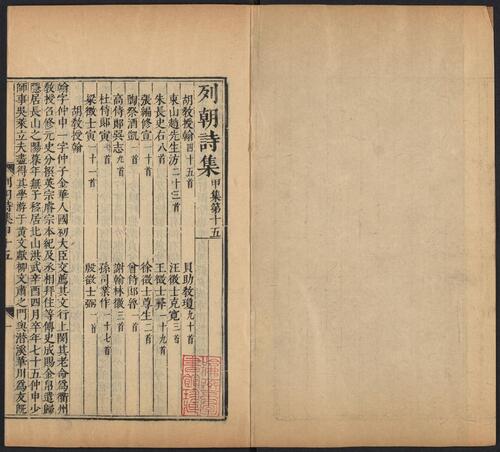 列朝詩集甲集第十五
胡教授翰四十五首　貝助教瓊九十首
東山趙先生汸二十三首　汪徵士克寬三首
朱長史右八首　王徵士彝一十九首
張編修宣一十首　徐徵士尊生二首
陶祭酒凱一首　曾侍郎魯一首
高侍郎巽志九首　謝翰林徽三首
杜侍郎寅一首　孫司業作一十七首
梁徵士寅一十一首　殷徵士弼一首
胡教授翰
翰字仲申一字仲子金華人國初大臣交薦其文行上閔其老命為衢州
教授召修元史分撰英宗睿宗本紀及丞相拜住等傳史成賜金帛遣歸
隱居長山之陽暮年無子移居北山洪武辛酉四月卒年七十五仲申少
師事吳萊立夫盡得其學游于黃文獻柳文肅之門與潛溪華川為友既
列朝詩集甲十五　一